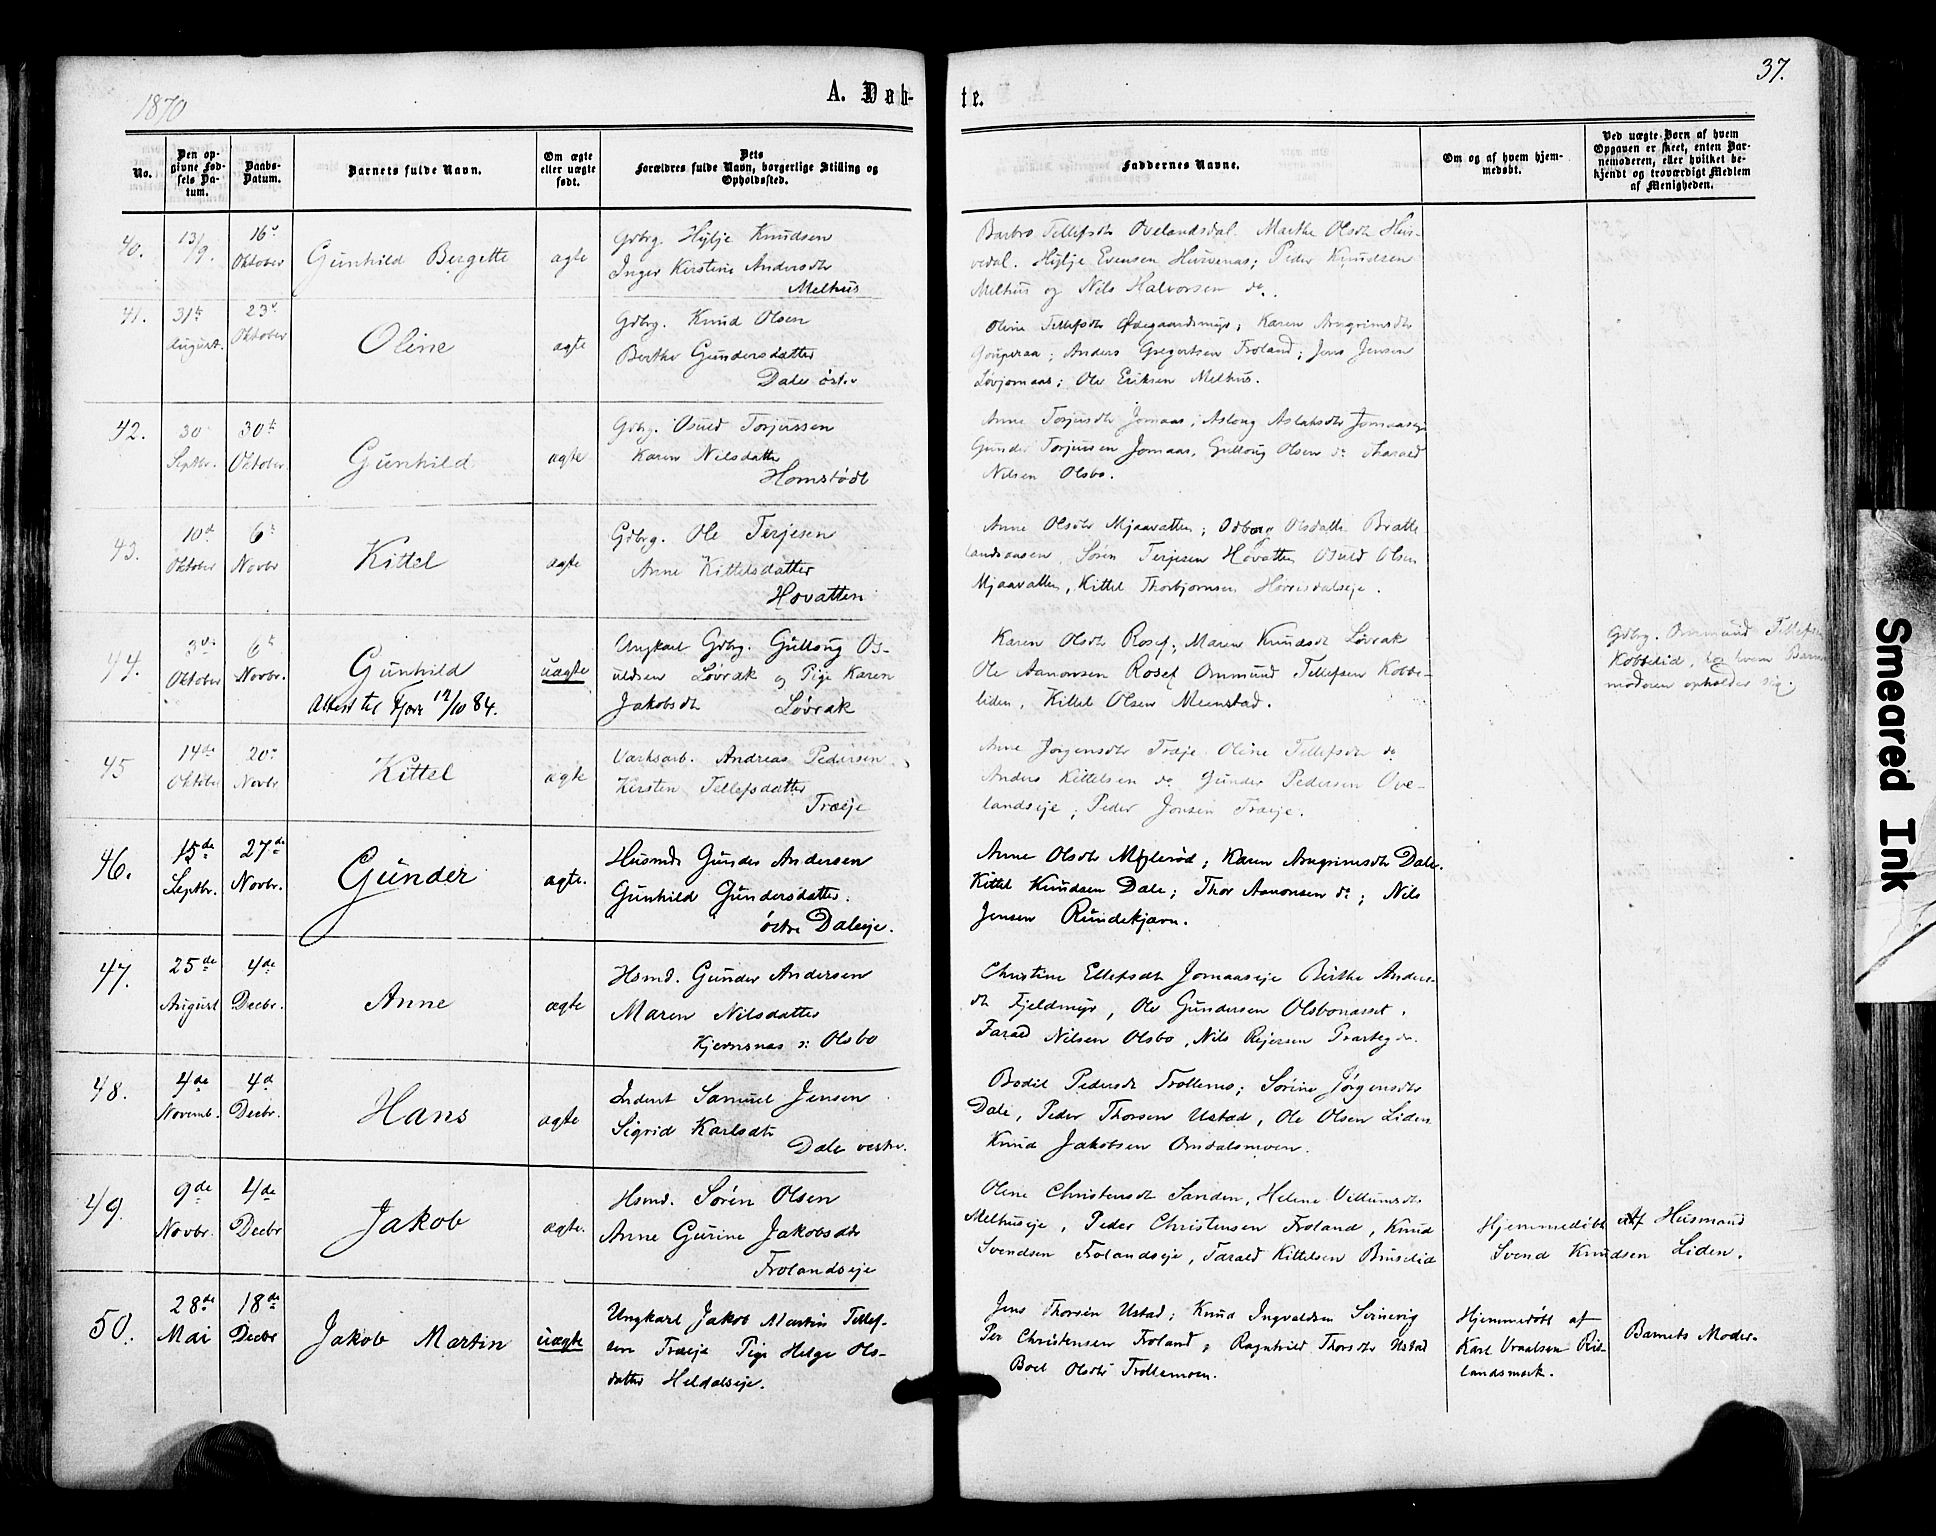 1870
A. Døb-
te.
37.
No.
Den op-
givne Fød-
sels Da-
tum.
Daabs-
Datum.
Barnets fulde Navn.
Om ægte
eller uægte
født.
Dets
Forældres fulde Navn, borgerlige Stilling og
Opholdssted.
Faddernes Navne.
Om og af hvem hjem-
medøbt.
Ved uægte Børn af hvem
Opgaven er skeet, enten Bar-
nemoderen, eller hvilket be-
kjendt og troværdigt Medlem
af Menigheden.
40.
13/9.
16de
Oktober
Gunhild Bergette
ægte
Gdbrg. Hylje Knudsen
Inger Kirstine Andersdtr
Melhus
Barbro Tellefsdtr Ovelandsdal. Marthe Olsdtr Hur-
vedal. Hylje Evensen Hurvenæs; Peder Knudsen
Melhus og Nils Halvorsen do.
41.
31te
August.
23de
Oktober
Oline
ægte
Gdbrg. Knud Olsen
Berthe Gundersdatter
Dale østre
Oline Tellefsdtr Ødegaardsmyr; Karen Arngrimsdtr
Anders Gregertsen Froland; Jens Jensen
Løvjomaas; Ole Eriksen Melhus.
42.
30
Septbr.
30te
Oktober
Gunhild
ægte
Gdbrg. Osuld Torjussen
Karen Nilsdatter
Homstødt
Anne Torjusdtr Jomaas, Aslaug Aslaksdtr Jomaaseje
Gunder Torjussen Jomaas, Gulloug Olsen do Tharald
Nilsen Olsbo.
43.
10de
Oktober
6te
Novbr
Kittel
ægte
Gdbrg. Ole Terjesen
Anne Kittelsdatter
Høvatten
Anne Olsdtr Mjaavatten; Odborg Olsdatter Bratte-
landsaasen, Søren Terjesen Høvatten Osuld Olsen
Mjaavatten, Kittel Thorbjørnsen
44.
3die
Oktober
6te
Novbr.
Gunhild
Attest til Fjære 12/10 84.
uægte
Ungkarl Gdbrg. Gulloug Os-
uldsen Løvrak og Pige Karen
Jakobsdtr Løvrak
Karen Olsdtr Rosef; Maren Knudsdtr Løvrak
Ole Aanonsen Rosef Ommund Tellefsen Kobbe-
liden, Kittel Olsen Meenstad.
Gdbrg. Ommund Tellefsen
Kobbelid, hos hvem Barne-
moderen opholder sig.
45
14de
Oktober
20de
Novbr
Kittel
ægte
Værksarb. Andreas Pedersen
Kirsten Tellefsdatter
Træeje
Anne Jørgensdtr Træeje. Oline Tellefsdtr do
Anders Kittelsen do Gunder Pedersen Ove-
landseje; Peder Jonsen Træeje.
46.
15de
Septbr.
27de
Novbr.
Gunder
ægte.
Husmd. Gunder Andersen
Gunhild Gundersdatter.
østre Daleeje.
Anne Olsdtr Møglerød; Karen Arngrimsdtr Dale.
Kittel Knudsen Dale; Thor Aanonsen do; Nils
Jensen Rundekjærn.
47.
25de
August
4de
Decbr.
Anne
ægte
Hsmd. Gunder Andersen
Maren Nilsdatter
Kjernsnæs v: Olsbo
Christine Ellefsdtr Jomaaseje Birthe Anders-
dtr Fjeldmyr, Ole Gundersen Olsbonæsset.
Tarald Nilsen Olsbo, Nils Rejersen
48.
4de
Novemb.
4d
Decbr.
Hans
ægte
Inderst Samuel Jensen
Sigrid Karlsdtr
Dale vestre.
Bodil Pedersdtr Trollemo; Sørine Jørgensdtr
Dale, Peder Thorsen Ustad, Ole Olsen Liden
Knud Jakobsen Omdalsmoen.
49.
9de
Novbr.
4de
Decbr
Jakob
ægte.
Hsmd. Søren Olsen
Anne Gurine Jakobsdtr
Frolandseje
Oline Christensdtr Sanden, Helene Villumsdtr
Melhuseje, Peder Christensen Froland, Knud
Svendsen Frolandseje, Tarald Kittelsen Buselid
Hjemmedøbt af Husmand
Svend Knudsen Liden.
50.
28de
Mai
18de
Decbr
Jakob Martin
uægte
Ungkarl Jakob Martin Tellef-
sen Træeje Pige Helge Ols-
datter Heldalseje.
Jens Thorsen Ustad; Knud Ingvaldsen Svinevig
Per Christensen Froland, Ragnhild Thorsdtr Ustad
Boel Olsdtr Trollemoen.
Hjemmedøbt af
Karl Vraalsen Ris-
landsmark.
Barnets Moder.
Smeared Ink